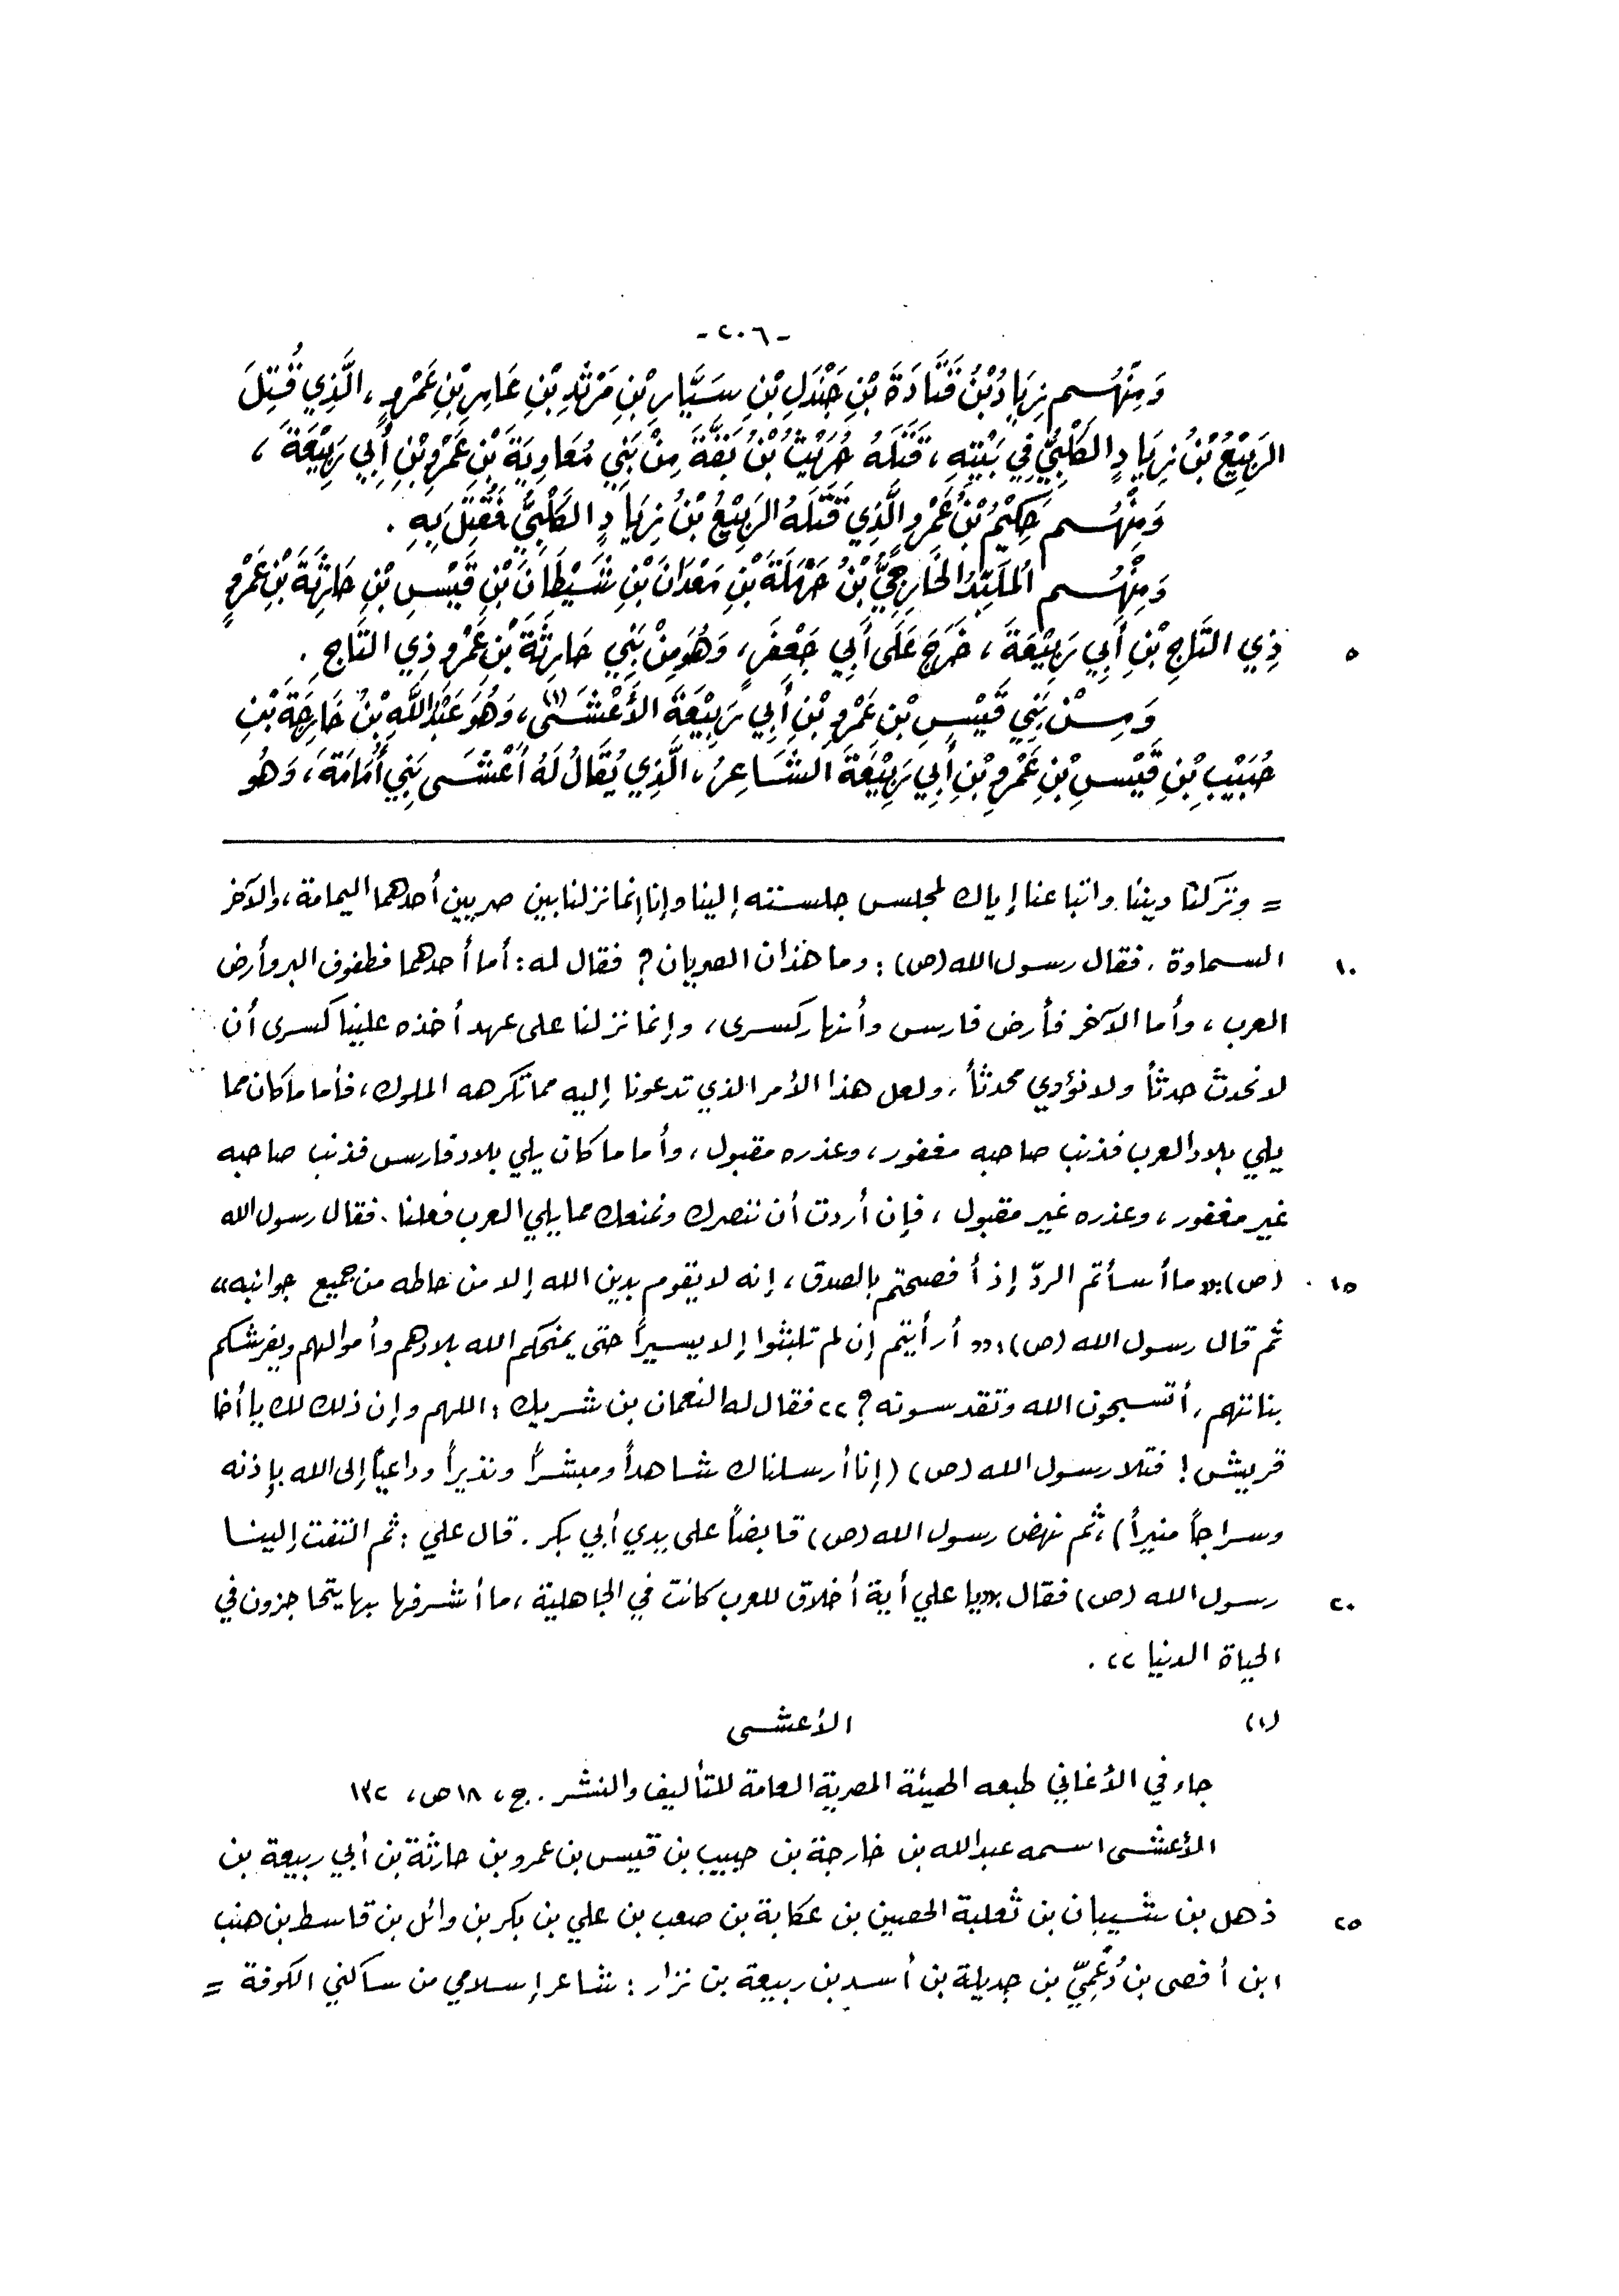 -٢٠٦-
وَمِنْهُم زِيَادُ بْنُ قَتَادَةَ بْنِ جَنْدَلِ بْنِ سَيَّارِ بْنِ مَرْثَدِ بْنِ عَامِرِ بْنِ عَمْرٍو، الَّذِي قُتِلَ
الرَبِيْعُ بْنُ زِيَادٍ الكَلْبِيُّ فِي بَيْتِهِ، قَتَلَهُ حُرَيْثُ بْنُ بَقَّةَ مِنْ بَنِي مُعَاوِيَةَ بْنِ عَمْرِو بْنِ أَبِي رَبِيْعَةَ،
وَمِنْهُم حَكِيْمُ بْنُ عَمْرٍو الَّذِي قَتَلَهُ الرَبِيْعُ بْنُ زِيَادٍ الكَلْبِيُّ فَقُتِلَ بِهِ.
وَمِنْهُم المُلَبِّدُ الخَارِجِيُّ بْنُ حَرْمَلَةَ بْنِ مَعْدَانَ بْنِ شَيْطَانَ بْنِ قَيْسِ بْنِ حَارِثَةَ بْنِ عَمْرٍو
ذِي التَاجِ بْنِ أَبِي رَبِيْعَةَ، خَرَجَ عَلَى أَبِي جَعْفَرٍ، وَهُوَ مِنْ بَنِي حَارِثَةَ بْنِ عَمْرٍو ذِي التَاجِ. ٥
وَمِنْ بَنِي قَيْسِ بْنِ عَمْرِو بْنِ أَبِي رَبِيْعَةَ الأَعْشَى(١)، وَهُوَ عَبْدُ اللَّهِ بْنُ خَارِجَةَ بْنِ
حُبَيْبِ بْنِ قَيْسِ بْنِ عَمْرِو بْنِ أَبِي رَبِيْعَةَ الشَاعِرُ، الَّذِي يُقَالُ لَهُ أَعْشَى بَنِي أُمَامَةَ، وَهُو
= وتركنا ديننا. واتباعنا إياك لمجلس جلسته إلينا وإنا إنما نزلنا بين صريين أحدهما اليمامة، والآخر
السماوة. فقال رسول الله (ص): وما هذان الصريان؟ فقال له: أما أحدهما فطفوف البر وأرض ١٠
العرب، وأما الآخر فأرض فارس وأنهار كسرى، وإنما نزلنا على عهد أخذه علينا كسرى أن
لا نحدث حدثاً ولا نؤوي محدثاً. ولعل هذا الأمر الذي تدعونا إليه مما تكرهه الملوك، فأما ما كان مما
يلي بلاد العرب فذنب صاحبه مغفور، وعذره مقبول، وأما ما كان يلي بلاد فارس فذنب صاحبه
غير مغفور، وعذره غير مقبول، فإن أردت أن ننصرك ونمنعك مما يلي العرب فعلنا. فقال رسول الله
(ص): «ما أسأتم الردّ إذ أفصحتم بالصدق، إنه لا يقوم بدين الله إلا من حاطه من جميع جوانبه» ١٥
ثم قال رسول الله (ص): «أرأيتم إن لم تلبثوا إلا يسيراً حتى يمنحكم الله بلادهم وأموالهم ويفرشكم
بناتهم، أتسبحون الله وتقدسونه؟» فقال له النعمان بن شريك: اللهم وإن ذلك لك يا أخا
قريش! فتلا رسول الله (ص) (إنا أرسلناك شاهداً ومبشراً ونذيراً وداعياً إلى الله بإذنه
وسراجاً منيراً)، ثم نهض رسول الله (ص) قابضاً على يدي أبي بكر. قال علي: ثم التفت إلينا
رسول الله (ص) فقال: «يا علي أية أخلاق للعرب كانت في الجاهلية، ما أشرفها بها يتحاجزون في ٢٠
الحياة الدنيا».
(١) الأعشى
جاء في الأغاني طبعه الهيئة المصرية العامة للتأليف والنشر. ج، ١٨ ص، ١٣٢
الأعشى اسمه عبدالله بن خارجة بن حبيب بن قيس بن عمرو بن حارثة بن أبي ربيعة بن
ذهل بن شيبان بن ثعلبة الحصين بن عكابة بن صعب بن علي بن بكر بن وائل بن قاسط بن هنب ٢٥
ابن أفصى بن دُعْمِيّ بن جديلة بن أسد بن ربيعة بن نزار: شاعر إسلامي من ساكني الكوفة =